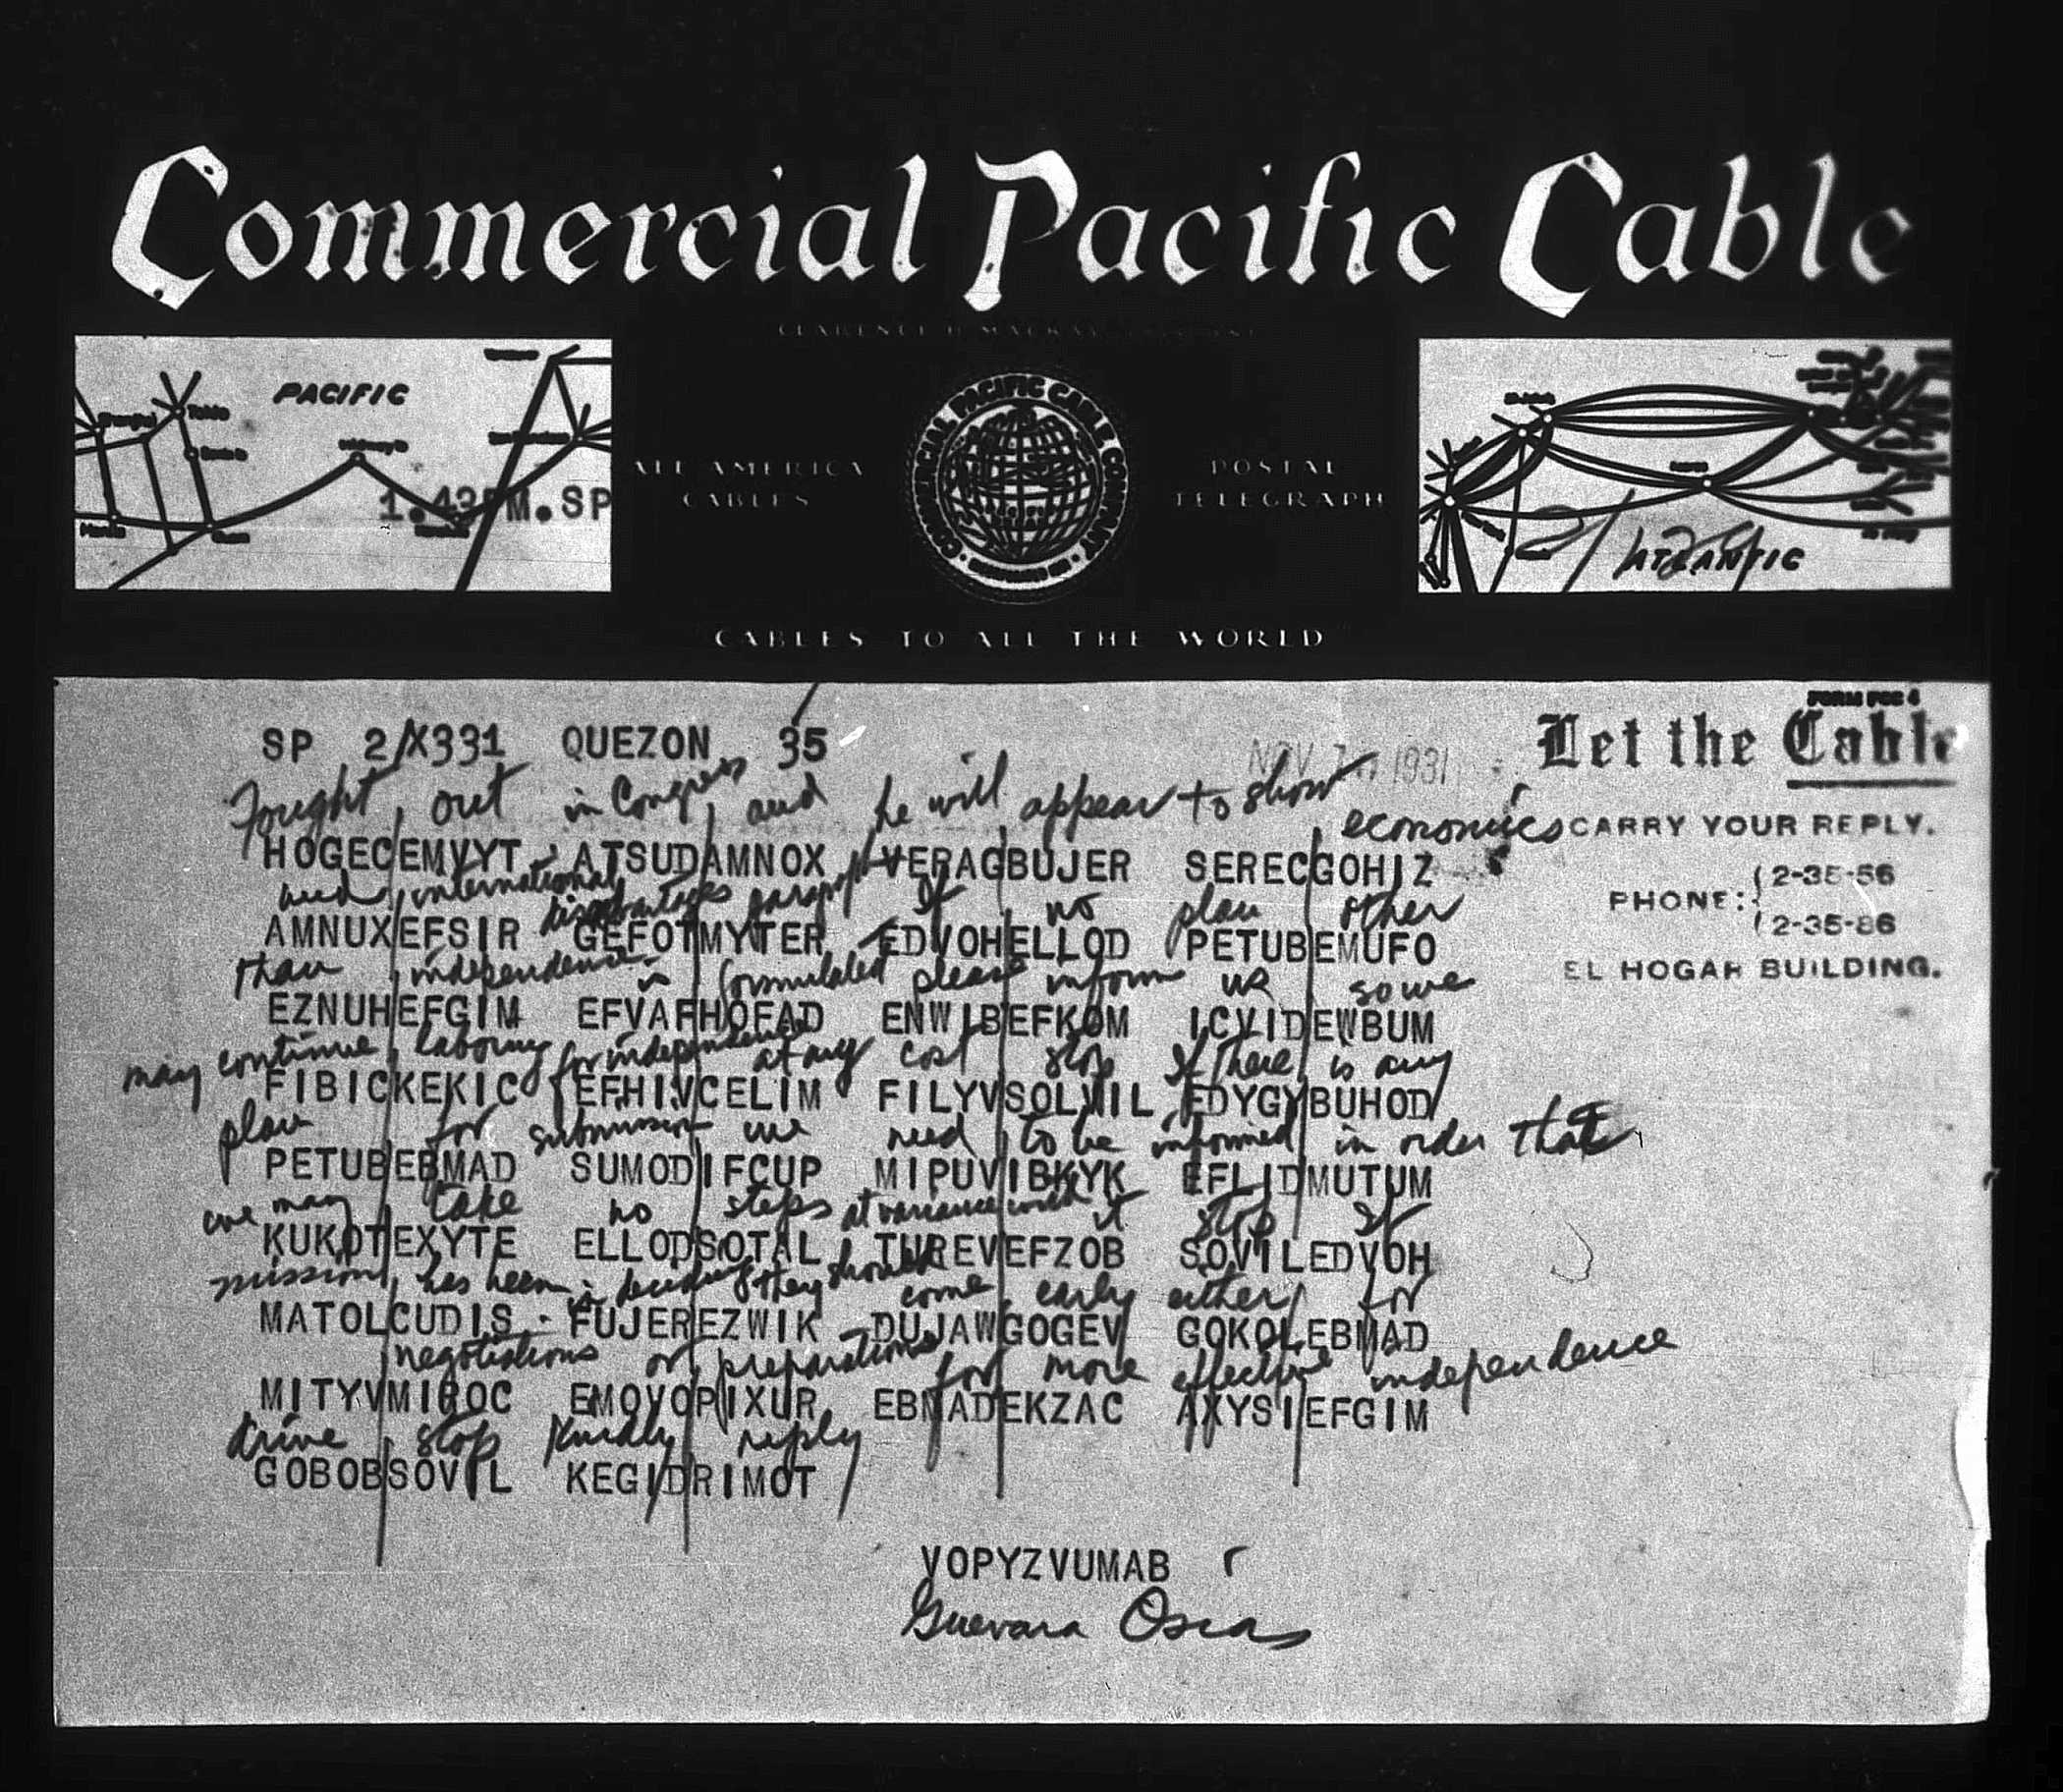 Commercial Pacific Cable
CLARENCE H. MACKAY
PACIFIC
1.42PM.SP
COMMERCIAL PACIFIC CABLE COMPANY
ALL AMERICA
CABLES
POSTAL
TELEGRAPH
ATLANTIC
CABLES TO ALL THE WORLD
FORM PCC 4
SP 2/X331 QUEZON 35
NOV 1931
Let the Cable
CARRY YOUR REPLY.
PHONE: { 2-35-56
2-35-86
EL HOGAR BUILDING.
Fought out in Congress and he will appear to show economics
HOGECEMVYT ATSUDAMNOX VERAGBUJER SERECGOHIZ
and international disadvantages paragraph If no plan other
AMNUXEFSIR GEFOTMYTER EDVOHELLOD PETUBEMUFO
than independence is formulated please inform us so we
EZNUHEFGIM EFVAFHOFAD ENWIBEFKOM ICVIDEWBUM
may continue laboring for independence at any cost stop If there is any
FIBICKEKIC EFHIVCELIM FILYVSOLVIL EDYGYBUHOD
plan for submission we need to be informed in order that
PETUBEBMAD SUMODIFCUP MIPUVIBKYK EFLIDMUTUM
we may take no steps at variance with it stop If
KUKOTEXYTE ELLODSOTAL TUREVEFZOB SOVILEDVOH
mission has been is deciding they should come early either for
MATOLCUDIS FUJEREZWIK DUJAWGOGEV GOKOLEBMAD
negotiations or preparations for more effective independence
MITYVMIROC EMOVOPIXUR EBMADEKZAC AXYSIEFGIM
drive stop Kindly reply
GOBOBSOVIL KEGIDRIMOT
VOPYZVUMAB
Guevara Osias